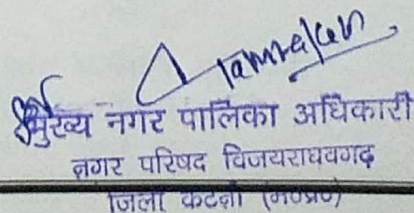 Tamrakar
मुख्य नगर पालिका अधिकारी
नगर परिषद विजयराघवगढ़
जिला कटनी (म०प्र०)